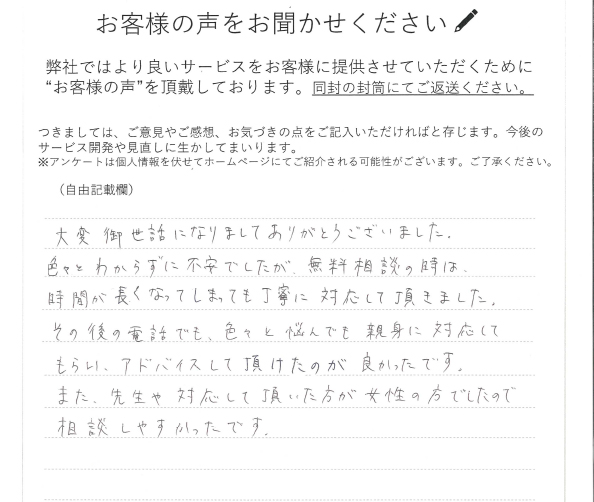 お客様の声をお聞かせください
弊社ではより良いサービスをお客様に提供させていただくために
“お客様の声”を頂戴しております。同封の封筒にてご返送ください。
つきましては、ご意見やご感想、お気づきの点をご記入いただければと存じます。今後の
サービス開発や見直しに生かしてまいります。
※アンケートは個人情報を伏せてホームページにてご紹介される可能性がございます。ご了承ください。
（自由記載欄）
大変御世話になりましてありがとうございました。
色々とわからずに不安でしたが、無料相談の時は、
時間が長くなってしまっても丁寧に対応して頂きました。
その後の電話でも、色々と悩んでも親身に対応して
もらい、アドバイスして頂けたのが良かったです。
また、先生や対応して頂いた方が女性の方でしたので
相談しやすかったです。